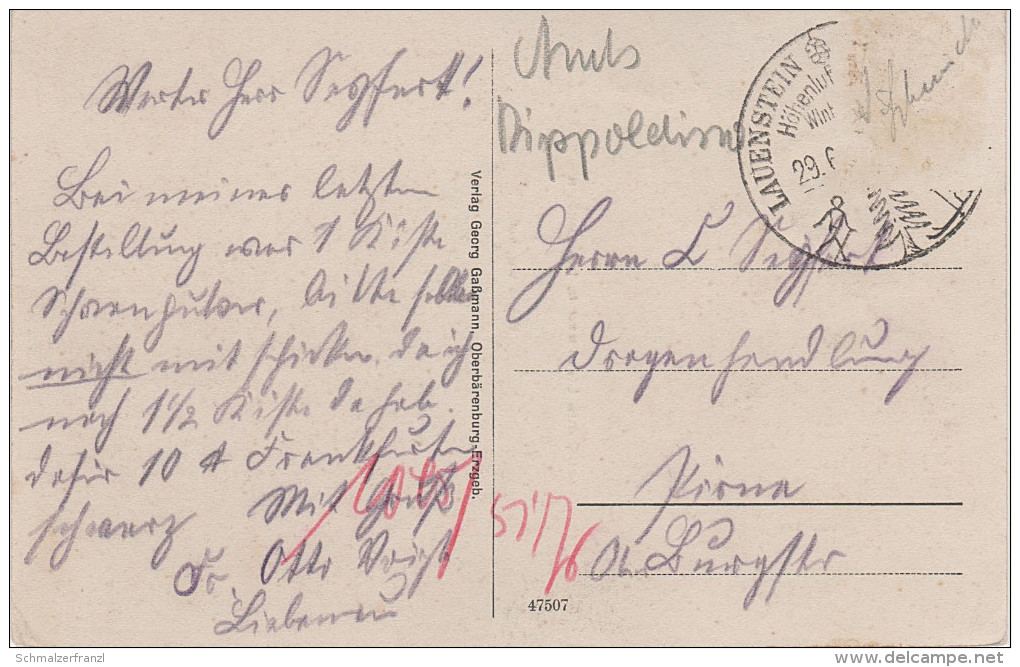 Werter Herr Seyffert!
Bei meiner letzten
Bestellung war 1 Kiste
bitte
nicht mit schicken, da ich
noch 1½ Kiste da hab.
dafür 10 Frankfurter
schwarz Mit Gruß
Fr. Otto Voigt
Liebenau
Verlag Georg Gaßmann, Oberbärenburg-Erzgeb.
47507
Amts
LAUENSTEIN
Höhenluf
Wint
29.6
Herrn E Seyffert
Drogenhandlung
Pirna
Ob. Burgstr
Schmalzerfranzl
delcampe.net